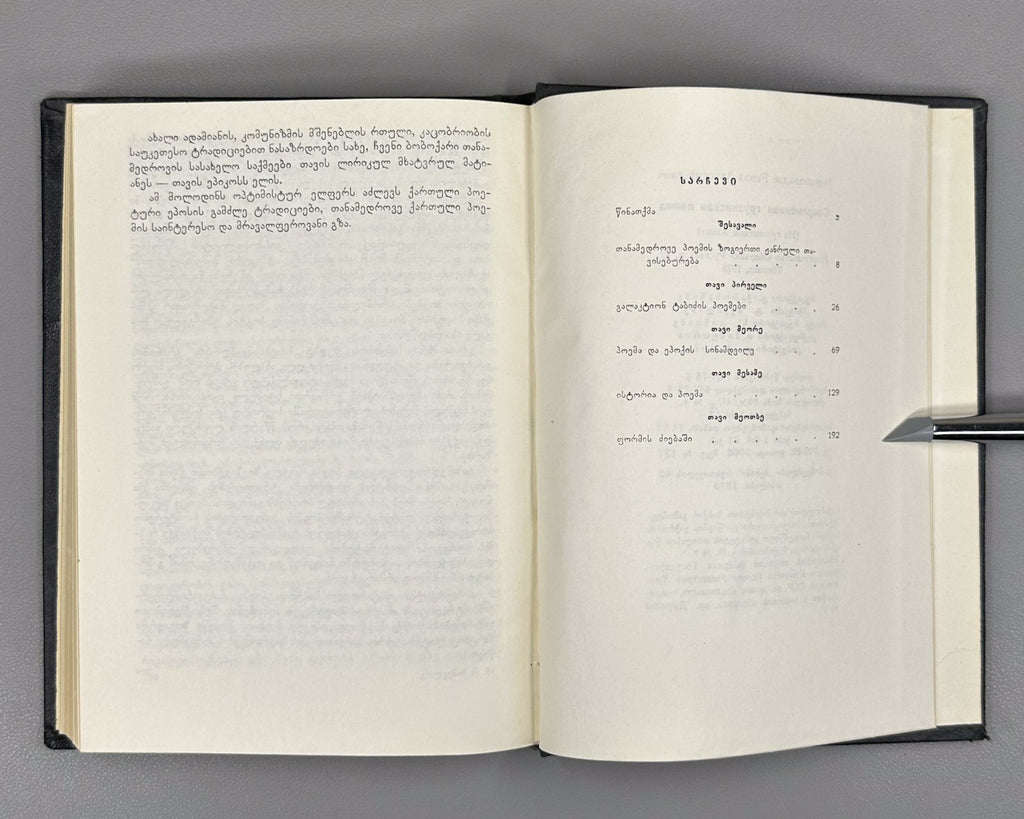 ახალი ადამიანის, კომუნიზმის მშენებლის რთული, კაცობრიობის
საუკეთესო ტრადიციებით ნასაზრდოები სახე, ჩვენი ბობოქარი თანა-
მედროვის სასახელო საქმეები თავის ლირიკულ მხატვრულ მატი-
ანეს — თავის ეპიკოსს ელის.
ამ მოლოდინს ოპტიმისტურ ელფერს აძლევს ქართული პოე-
ტური ეპოსის გამძლე ტრადიციები, თანამედროვე ქართული პოე-
მის საინტერესო და მრავალფეროვანი გზა.
სარჩევი
წინათქმა
შესავალი
თანამედროვე პოემის ზოგიერთი ჟანრული თა-
ვისებურება . . . . . 8
თავი პირველი
გალაკტიონ ტაბიძის პოემები . . . 26
თავი მეორე
პოემა და ეპოქის სინამდვილე . . . 69
თავი მესამე
ისტორია და პოემა . . . . . 129
თავი მეოთხე
ფორმის ძიებაში . . . . . . 192